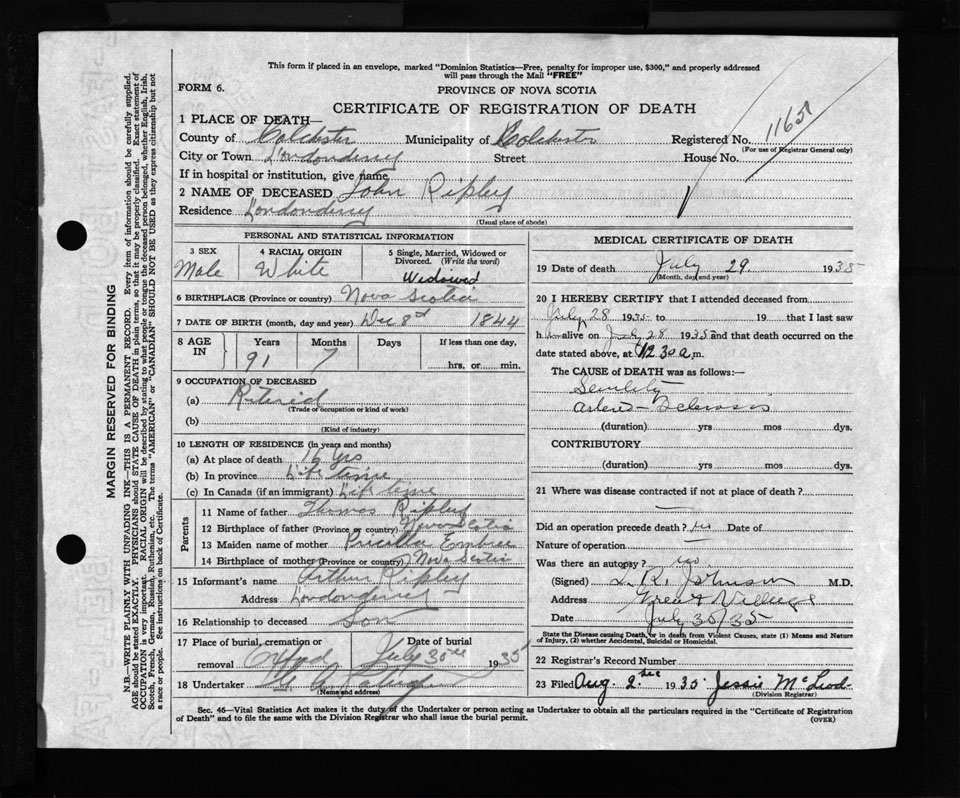 This form if placed in an envelope, marked "Dominion Statistics—Free, penalty for improper use, $300," and properly addressed
will pass through the Mail "FREE"
FORM 6.
PROVINCE OF NOVA SCOTIA
CERTIFICATE OF REGISTRATION OF DEATH
1 PLACE OF DEATH—
County of Colchester Municipality of Colchester Registered No.
(For use of Registrar General only)
City or Town Londonderry Street House No.
If in hospital or institution, give name
2 NAME OF DECEASED John Ripley
Residence Londonderry
(Usual place of abode)
PERSONAL AND STATISTICAL INFORMATION
3 SEX 4 RACIAL ORIGIN 5 Single, Married, Widowed or
Divorced. (Write the word)
Male White Widowed
6 BIRTHPLACE (Province or country) Nova Scotia
7 DATE OF BIRTH (month, day and year) Dec 8 1844
8 AGE IN Years Months Days If less than one day,
91 7 hrs. or min.
9 OCCUPATION OF DECEASED
(a) Retired
(Trade or occupation or kind of work)
(b)
(Kind of industry)
10 LENGTH OF RESIDENCE (in years and months)
(a) At place of death 16 yrs
(b) In province Life time
(c) In Canada (if an immigrant) Life time
Parents
11 Name of father Thomas Ripley
12 Birthplace of father (Province or country) Nova Scotia
13 Maiden name of mother Pricilla Embree
14 Birthplace of mother (Province or country) Nova Scotia
15 Informant's name Arthur Ripley
Address Londonderry
16 Relationship to deceased son
17 Place of burial, cremation or Date of burial
removal July 30 1935
18 Undertaker
(Name and address)
MEDICAL CERTIFICATE OF DEATH
19 Date of death July 29 1935
(Month, day and year)
20 I HEREBY CERTIFY that I attended deceased from
July 28 1935 to 19 that I last saw
h alive on July 28 1935 and that death occurred on the
date stated above, at 12.30 a.m.
The CAUSE of DEATH was as follows:—
Senility
Arterio-Sclerosis
(duration) yrs mos dys.
CONTRIBUTORY
(duration) yrs mos dys.
21 Where was disease contracted if not at place of death?
Did an operation precede death? no Date of
Nature of operation
Was there an autopsy? no
(Signed) Johnson M.D.
Address Great Village
Date July 30/35
State the Disease causing Death, or in death from Violent Causes, state (1) Means and Nature
of Injury, (2) whether Accidental, Suicidal or Homicidal.
22 Registrar's Record Number
23 Filed Aug. 2 1935 Jessie McLeod
(Division Registrar)
Sec. 46—Vital Statistics Act makes it the duty of the Undertaker or person acting as Undertaker to obtain all the particulars required in the "Certificate of Registration
of Death" and to file the same with the Division Registrar who shall issue the burial permit.
(OVER)
MARGIN RESERVED FOR BINDING
N.B.—WRITE PLAINLY WITH UNFADING INK—THIS IS A PERMANENT RECORD. Every item of information should be carefully supplied.
AGE should be stated EXACTLY. PHYSICIANS should STATE CAUSE OF DEATH in plain terms, so that it may be properly classified. Exact statement of
OCCUPATION is very important. RACIAL ORIGIN will be described by stating to what people or tongue the deceased person belonged, whether English, Irish,
Scotch, French, German, Russian, Ruthenian, etc. The terms "AMERICAN" or "CANADIAN" SHOULD NOT BE USED as they express citizenship but not
a race or people. See instructions on back of Certificate.